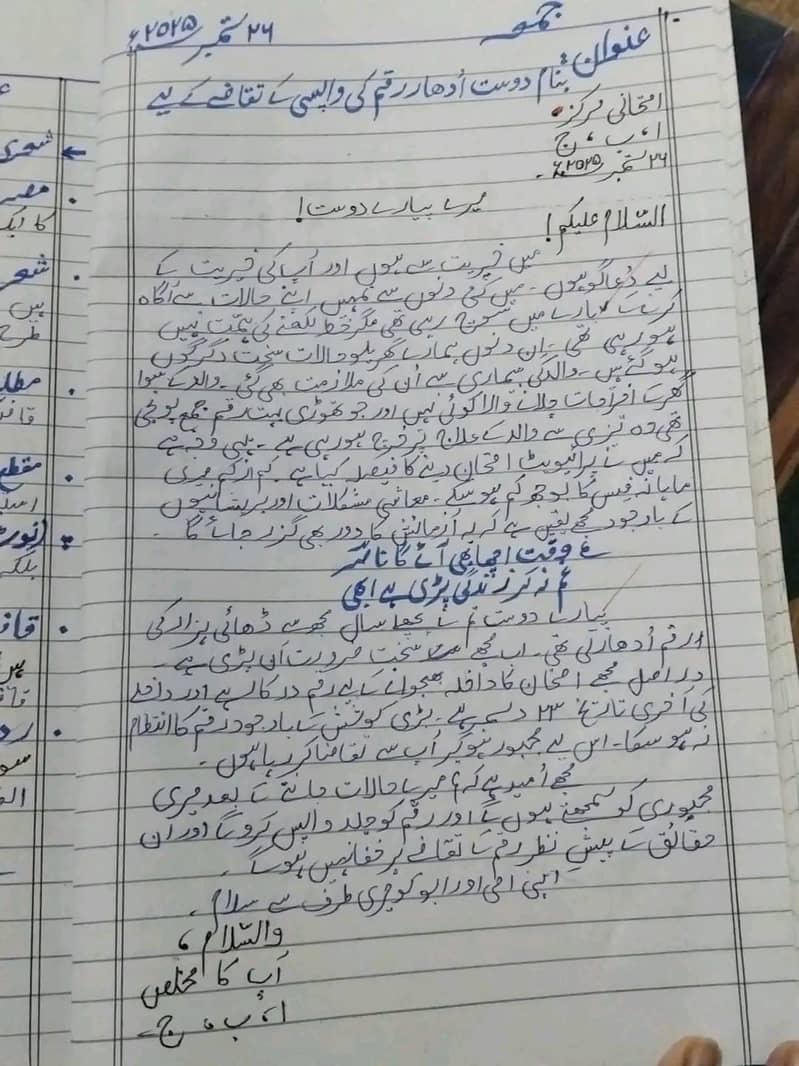 جمعہ
۲۶ ستمبر ۲۰۲۵ء
عنوان:
بنام دوست اُدھار رقم کی واپسی کے تقاضے کے لیے
امتحانی مرکز
ا، ب، ج
۲۶ ستمبر ۲۰۲۵ء۔
میرے پیارے دوست!
السّلام علیکم!
میں خیریت سے ہوں اور آپ کی خیریت کے
لیے دُعا گو ہوں۔ میں کئی دنوں سے تمہیں اپنے حالات سے آگاہ
کرنے کے بارے میں سوچ رہی تھی مگر خط لکھنے کی ہمّت نہیں
ہو رہی تھی۔ اِن دنوں ہمارے گھریلو حالات سخت دگرگوں
ہو گئے ہیں۔ والد کی بیماری سے اُن کی ملازمت بھی گئی۔ والد کے سوا
گھر کے اخراجات چلانے والا کوئی نہیں اور جو تھوڑی بہت رقم جمع پونجی
تھی وہ تیزی سے والد کے علاج پر خرچ ہو رہی ہے۔ یہی وجہ ہے
کہ میں نے پرائیویٹ امتحان دینے کا فیصلہ کیا ہے۔ کم از کم میری
ماہانہ فیس کا بوجھ کم ہو سکے۔ معاشی مشکلات اور پریشانیوں
کے باوجود مجھے یقین ہے کہ یہ آزمائش کا دور بھی گزر جائے گا۔
ؔ وقت اچھا بھی آئے گا ناصر
غم نہ کر زندگی پڑی ہے ابھی
پیارے دوست تم نے پچھلے سال مجھ سے ڈھائی ہزار کی
رقم اُدھار لی تھی۔ اب مجھے سخت ضرورت آن پڑی ہے۔
در اصل مجھے امتحان کا داخلہ بھجوانے کے لیے رقم درکار ہے اور داخلے
کی آخری تاریخ ۲۳ دسمبر ہے۔ بڑی کوشش کے باوجود رقم کا انتظام
نہ ہو سکا۔ اس لیے مجبور ہو کر آپ سے تقاضا کر رہا ہوں۔
مجھے اُمید ہے کہ میرے حالات جاننے کے بعد میری
مجبوری کو سمجھتے ہوں گے اور رقم کو جلد واپس کرو گے اور ان
حقائق کے پیشِ نظر رقم کے تقاضے پر خفا نہیں ہو گے۔
اپنی امّی اور ابو کو میری طرف سے سلام۔
والسّلام،
آپ کا مخلص
ا، ب، ج۔